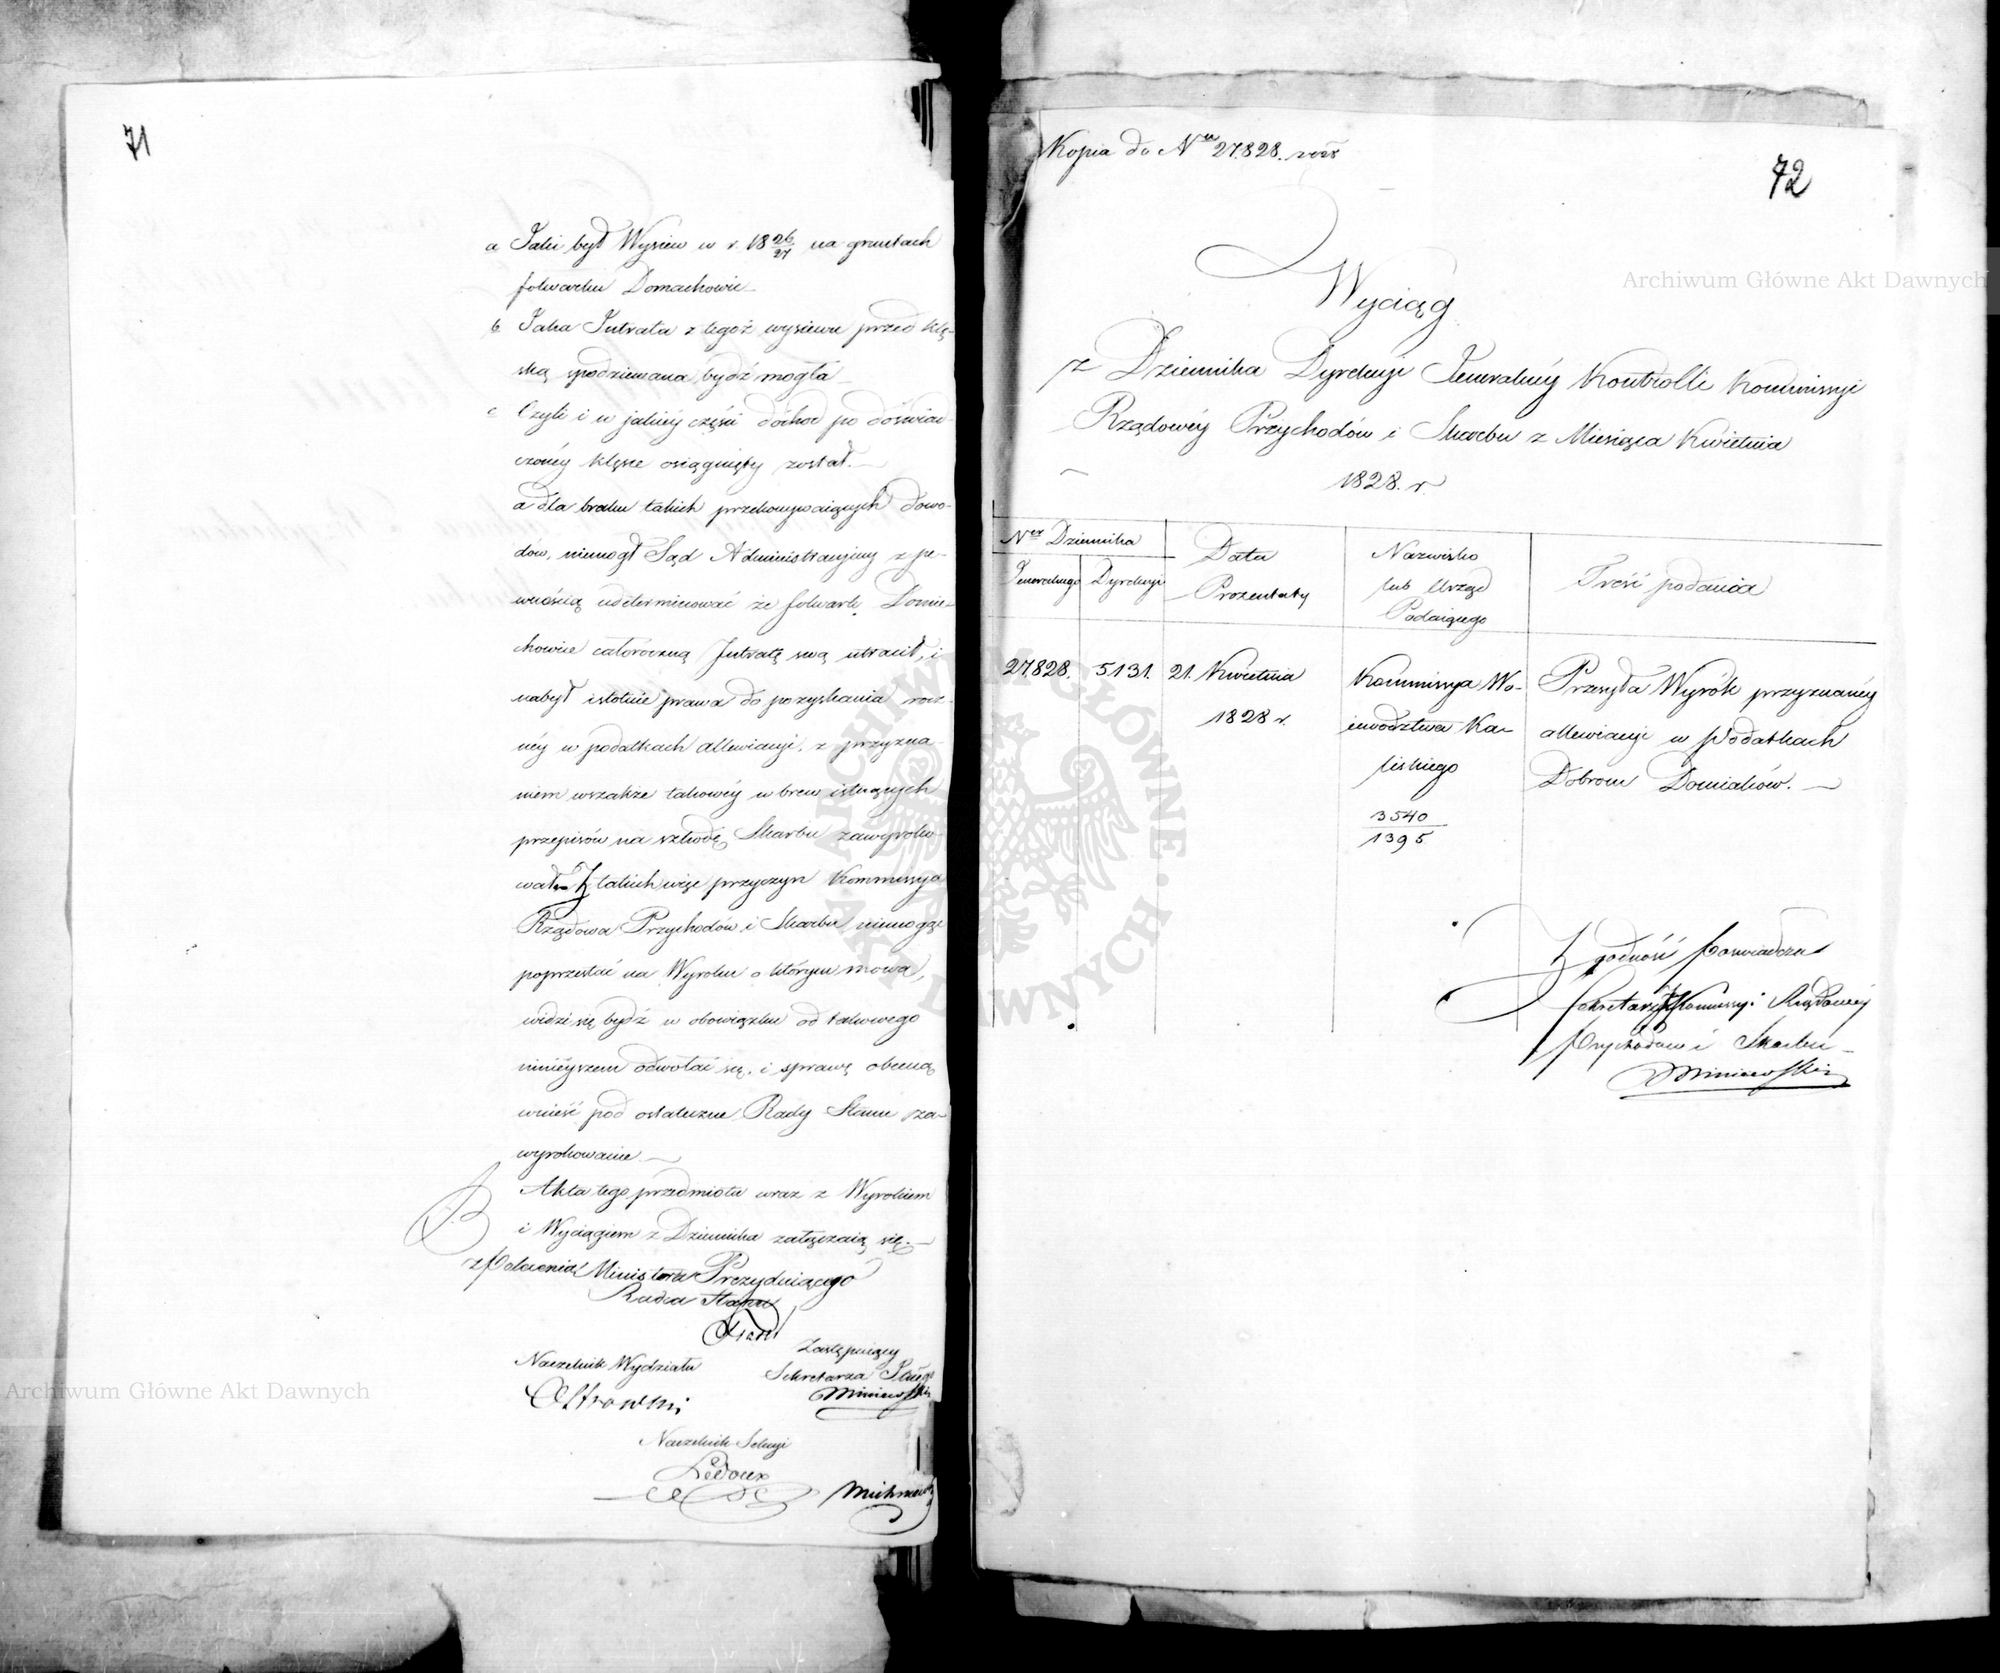 71
a Jaki był Wysiew w r. 18 26/27 na gruntach
folwarku Domachowic
b Jaka Intrata z tegoż wysiewu przed klę-
ską spodziewana bydź mogła
c Czyli i w jakiéy części dochod po doświad-
czonéy klęsce osiągnięty został. —
a dla braku takich przekonywaiących dowo-
dów, niemogł Sąd Administracyiny z pe-
wnością udeterminować że folwark
chowice całoroczną Intratę swą utracił, i
nabył istotnie prawa do pozyskania rocz-
néy w podatkach allewiacyi, z przyzna-
niem wszakże takowéy wbrew istnących
przepisów na szkodę Skarbu zawyroko-
wał Z takich więc przyczyn Kommissya
Rządowa Przychodów i Skarbu niemogąc
poprzestać na Wyroku o którym mowa,
widzi się bydź w obowiązku od takowego
ninieyszem odwołać się, i sprawę obecną
wnieść pod ostateczne Rady Stanu za-
wyrokowanie —
Akta tego przedmiotu wraz z Wyrokiem
i Wyciągiem z Dziennika załączaią się. —
z Polecenia Ministra Prezyduiącego
Radca Stanu
Naczelnik Wydziału
Ostrowski
Zastępuiący
Sekretarza
Miniewski
Naczelnik Sekcyi
Ledoux
Kopia do Nru 27.828.
72
Wyciąg
z Dziennika Dyrekcyi Jeneralnéy Kontrolli Kommissyi
Rządowéy Przychodów i Skarbu z Miesiąca Kwietnia
1828. r.
Ner Dziennika
Jeneralnego
Dyrekcyi
Data
Prezentaty
Nazwisko
lub Urząd
Podaiącego
Treść podania
27.828. 5131. 21. Kwietnia
1828 r.
Kommissya Wo-
iewództwa Ka-
liskiego
3540
1395
Przesyła Wyrók przyznanéy
allewiacyi w Podatkach
Dobrom Domiahów. —
Zgodność poswiadcza
Sekretarz Kommissyi Rządowéy
Przychodów i Skarbu
Miniewski
Archiwum Główne Akt Dawnych
Archiwum Główne Akt Dawnych
ARCHIWUM GŁÓWNE AKT DAWNYCH